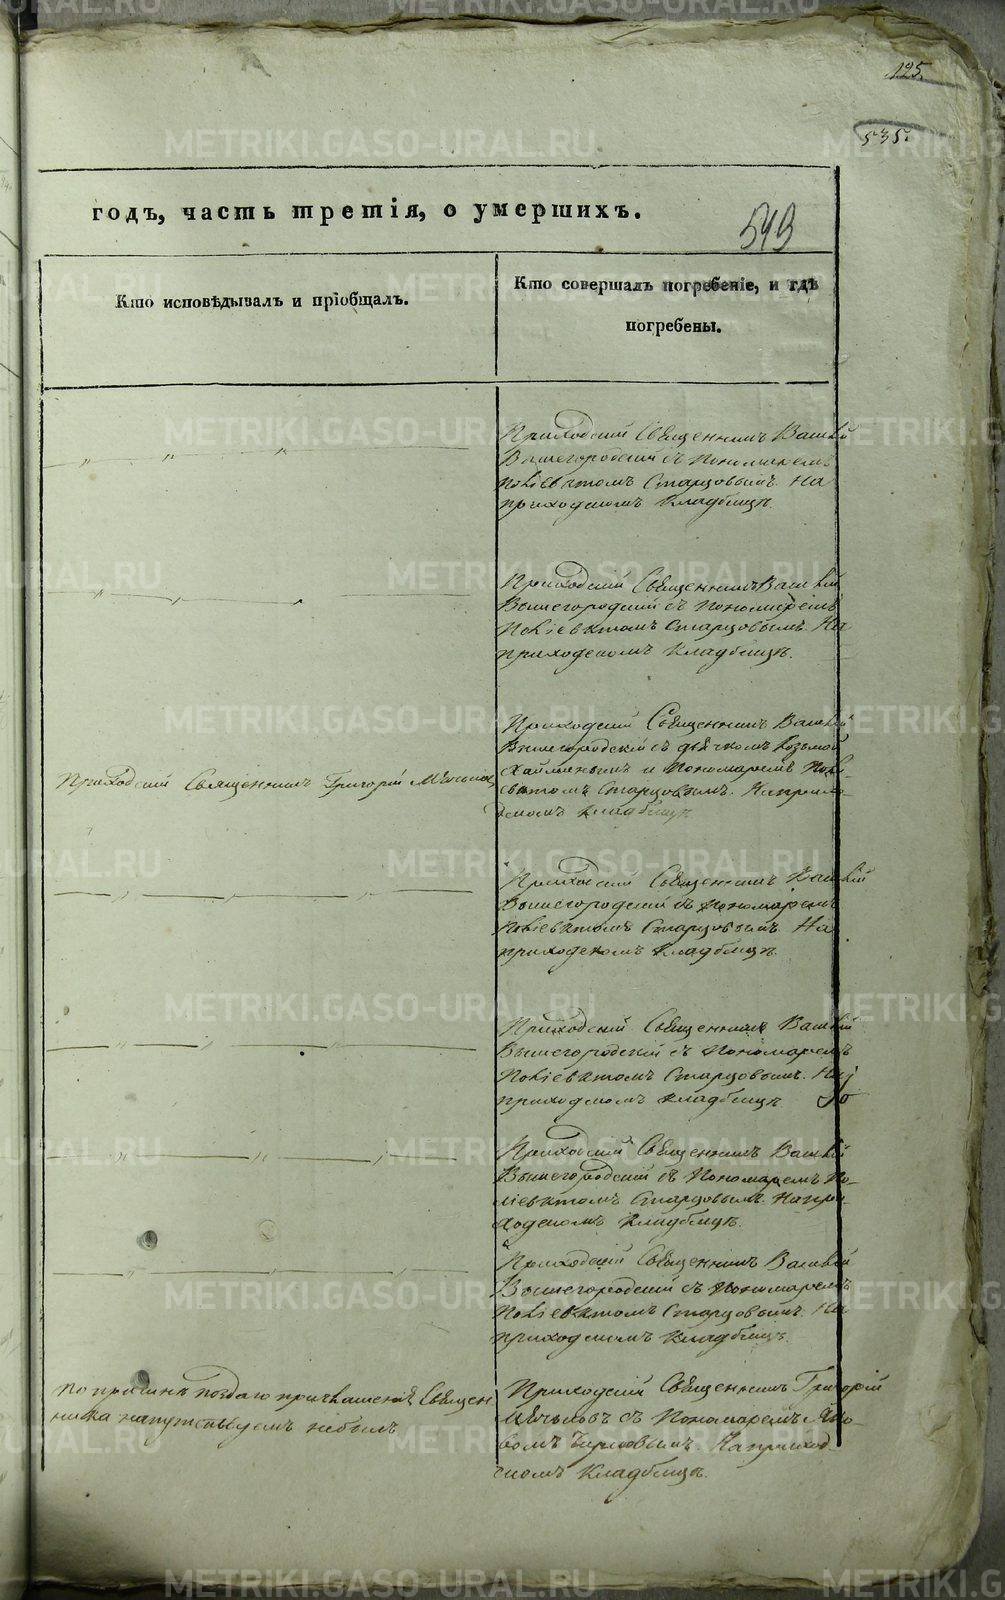 125.
535.
годъ, часть третія, о умершихъ.
513
Кто исповѣдывалъ и пріобщалъ.
Кто совершалъ погребеніе, и гдѣ
погребены.
Приходскій Священникъ Василій
Вышегородскій съ Пономаремъ
Поліевктомъ Старцовымъ. На
приходскомъ Кладбищѣ.
Приходскій Священникъ Василій
Вышегородскій съ Пономаремъ
Поліевктомъ Старцовымъ. На
приходскомъ Кладбищѣ.
Приходскій Священникъ Григорій
Приходскій Священникъ Василій
Вышегородскій съ дьячкомъ Козьмой
и Пономаремъ Полі-
евктомъ Старцовымъ. На прихо-
дскомъ Кладбищѣ
Приходскій Священникъ Василій
Вышегородскій съ Пономаремъ
Поліевктомъ Старцовымъ. На
приходскомъ Кладбищѣ.
Приходскій Священникъ Василій
Вышегородскій съ Пономаремъ
Поліевктомъ Старцовымъ. На
приходскомъ Кладбищѣ
Приходскій Священникъ Василій
Вышегородскій съ Пономаремъ По-
ліевктомъ Старцовымъ. На при-
ходскомъ Кладбищѣ.
Приходскій Священникъ Василій
Вышегородскій съ Пономаремъ
Поліевктомъ Старцовымъ. На
приходскомъ Кладбищѣ.
По причинѣ поздаго приглашенія Священ
ника напутствуемъ небылъ
Приходскій Священникъ Григорій
съ Пономаремъ Яко-
вомъ На приход-
скомъ Кладбищѣ.
METRIKI.GASO-URAL.RU